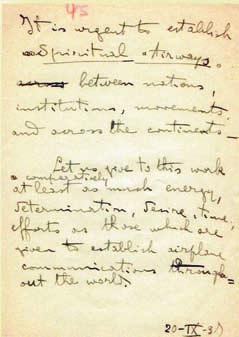 45
It is urgent to establish
"Spiritual Airways"
across between nations,
institutions, movements
and across the continents—
Let us give to this work
comparatively
at least as much energy,
determination, desire, time,
efforts as those which are
given to establish airplane
communications through=
out the world.
20-IX-37